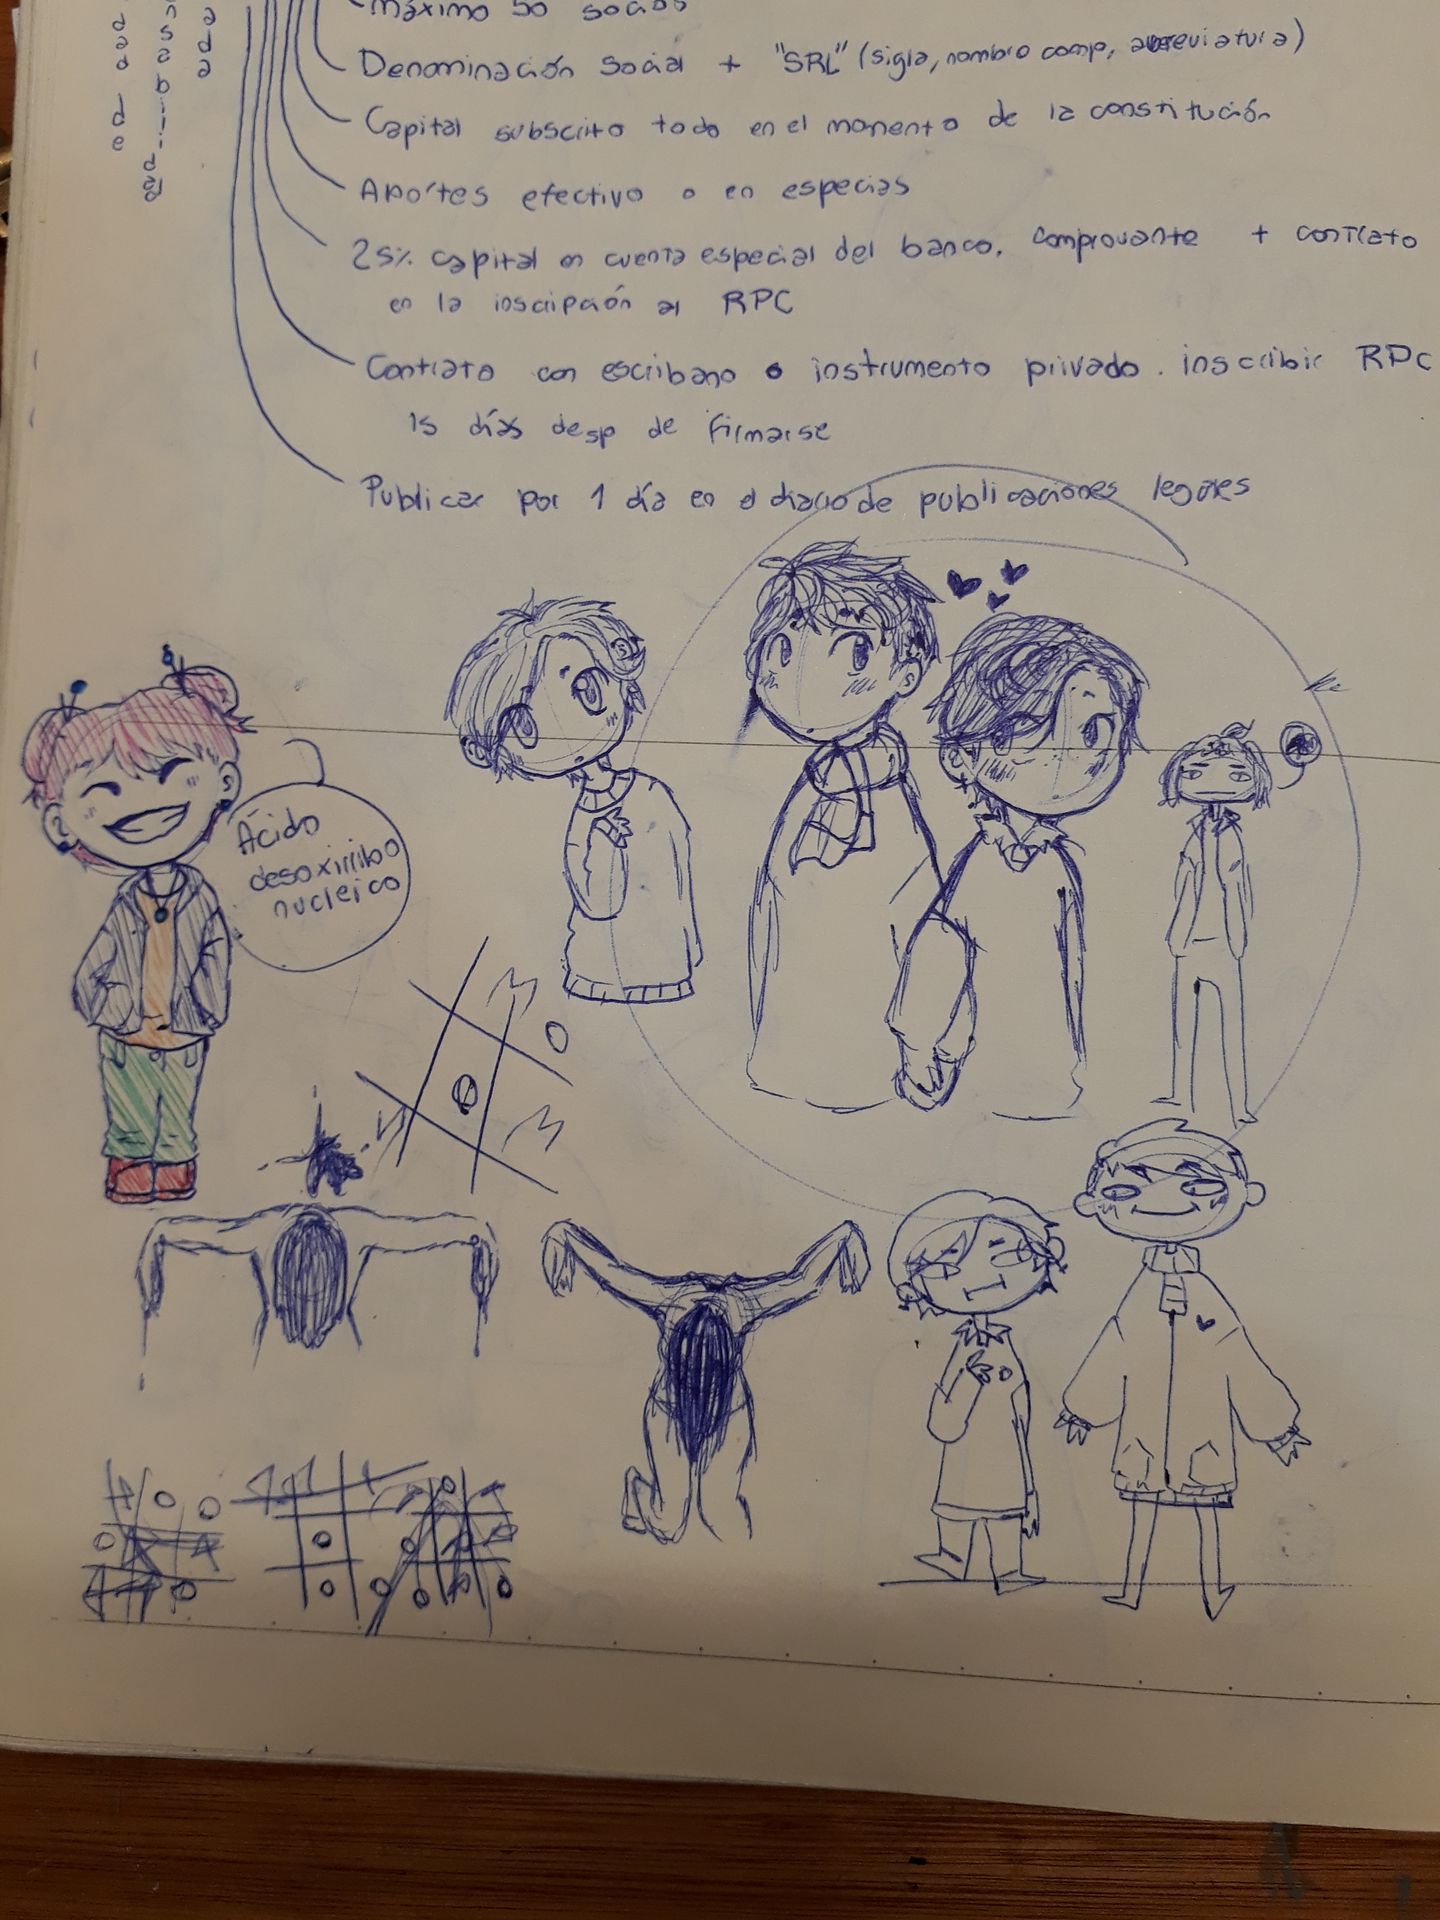 máximo 50 socios
Denominación social + "SRL" (sigla, nombre comp, abreviatura)
Capital subscrito todo en el momento de la constitución
Aportes efectivo o en especias
25% capital en cuenta especial del banco, comprovante + contrato
en la inscripción al RPC
Contrato con escribano o instrumento privado. inscribir RPC
15 días desp de firmarse
Publicar por 1 día en el diario de publicaciones legales
dad de
nsabilidad
ada
Ácido
desoxirribo
nucleico